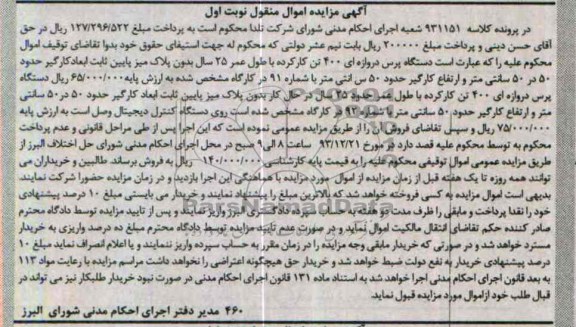 آگهی مزایده اموال منقول نوبت اول
در پرونده کلاسه ۹۳۱۱۵۱ شعبه اجرای احکام مدنی شورای شرکت تلدا محکوم است به پرداخت مبلغ ۱۲۷/۲۹۶/۵۲۲ ریال در حق
آقای حسن دینی و پرداخت مبلغ ۲۰۰۰۰۰ ریال بابت نیم عشر دولتی که محکوم له جهت استیفای حقوق خود بدوا تقاضای توقیف اموال
محکوم علیه را که عبارت است دستگاه پرس دروازه ای ۴۰۰ تن کارکرده با طول عمر ۲۵ سال بدون پلاک میز پایین ثابت ابعاد کارگیر حدود
۵۰ در ۵۰ سانتی متر و ارتفاع کارگیر حدود ۵۰ س انتی متر با شماره ۹۱ در کارگاه مشخص شده به ارزش پایه ۶۵/۰۰۰/۰۰۰ ریال دستگاه
پرس دروازه ای ۴۰۰ تن کارکرده با طول عمر حدود ۲۵ سال در حال کار بدون پلاک میز پایین ثابت ابعاد کارگیر حدود ۵۰ در ۵۰ سانتی
متر و ارتفاع کارگیر حدود ۵۰ سانتی متر با شماره ۹۲ در کارگاه مشخص شده است روی دستگاه کنترل دیجیتال وصل است به ارزش پایه
۷۵/۰۰۰/۰۰۰ ریال و سپس تقاضای فروش آن را از طریق مزایده عمومی نموده است که این اجرا پس از طی مراحل قانونی و عدم پرداخت
محکوم به توسط محکوم علیه قصد دارد در مورخ ۹۳/۱۲/۲۱ ساعت ۸ الی ۹ صبح در محل اجرای احکام مدنی شورای حل اختلاف البرز از
طریق مزایده عمومی اموال توقیفی محکوم علیه را به قیمت پایه کارشناسی ۱۴۰/۰۰۰/۰۰۰ ریال به فروش برساند. طالبین و خریداران می
توانند همه روزه تا یک هفته قبل از زمان مزایده از اموال مورد مزایده با هماهنگی این اجرا بازدید و در زمان مزایده حضورا شرکت نمایند
بدیهی است اموال مزایده به کسی فروخته خواهد شد که بالاترین مبلغ را پیشنهاد نمایند و خریدار می بایستی مبلغ ۱۰ درصد پیشنهادی
خود را نقدا پرداخت و مابقی را ظرف مدت دو هفته به حساب سپرده دادگستری البرز واریز نمایند و پس از تایید مزایده توسط دادگاه محترم
صادر کننده حکم تقاضای انتقال مالکیت اموال نماید و در صورت عدم تایید مزایده توسط دادگاه محترم مبلغ ده درصد واریزی به خریدار
مسترد خواهد شد و در صورتی که خریدار مابقی وجه مزایده را در زمان مقرر به حساب سپرده واریز ننمایند و یا اعلام انصراف نماید مبلغ ۱۰
درصد پیشنهادی خریدار به نفع دولت ضبط خواهد شد و خریدار حق هیچگونه اعتراضی را نخواهد داشت مراسم مزایده با رعایت مواد ۱۱۳
به بعد قانون اجرای احکام مدنی اجرا خواهد شد به استناد ماده ۱۳۱ قانون اجرای احکام مدنی در صورت نبود خریدار طلبکار نیز می تواند در
قبال طلب خود از اموال مورد مزایده قبول نماید.
۴۶۰ مدیر دفتر اجرای احکام مدنی شورای البرز
ParsNamadData